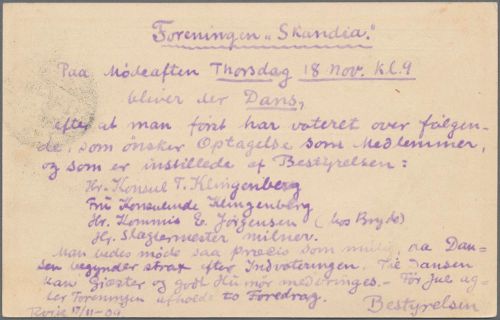 Foreningen „Skandia."
Paa Mødeaften Thorsdag 18 Nov. kl. 9
bliver der Dans,
efter at man først har voteret over følgen-
de, som ønsker Optagelse som Medlemmer,
og som er instillede af Bestyrelsen:
Hr. Konsul T. Klingenberg
Frú Konsulinde Klingenberg
Hr. Kommis E. Jörgensen (hos Bryde)
Hr. Slagtermester Milner.
Man bedes møde saa præcis som mulig, da Dan-
sen begynder strax efter Indvoteringen. Til Dansen
kan Gjæster og godt Húmör medbringes. - För Jul ag-
ter Foreningen afholdt Foredrag.
Bestyrelsen
Rvik 17/11 - 09